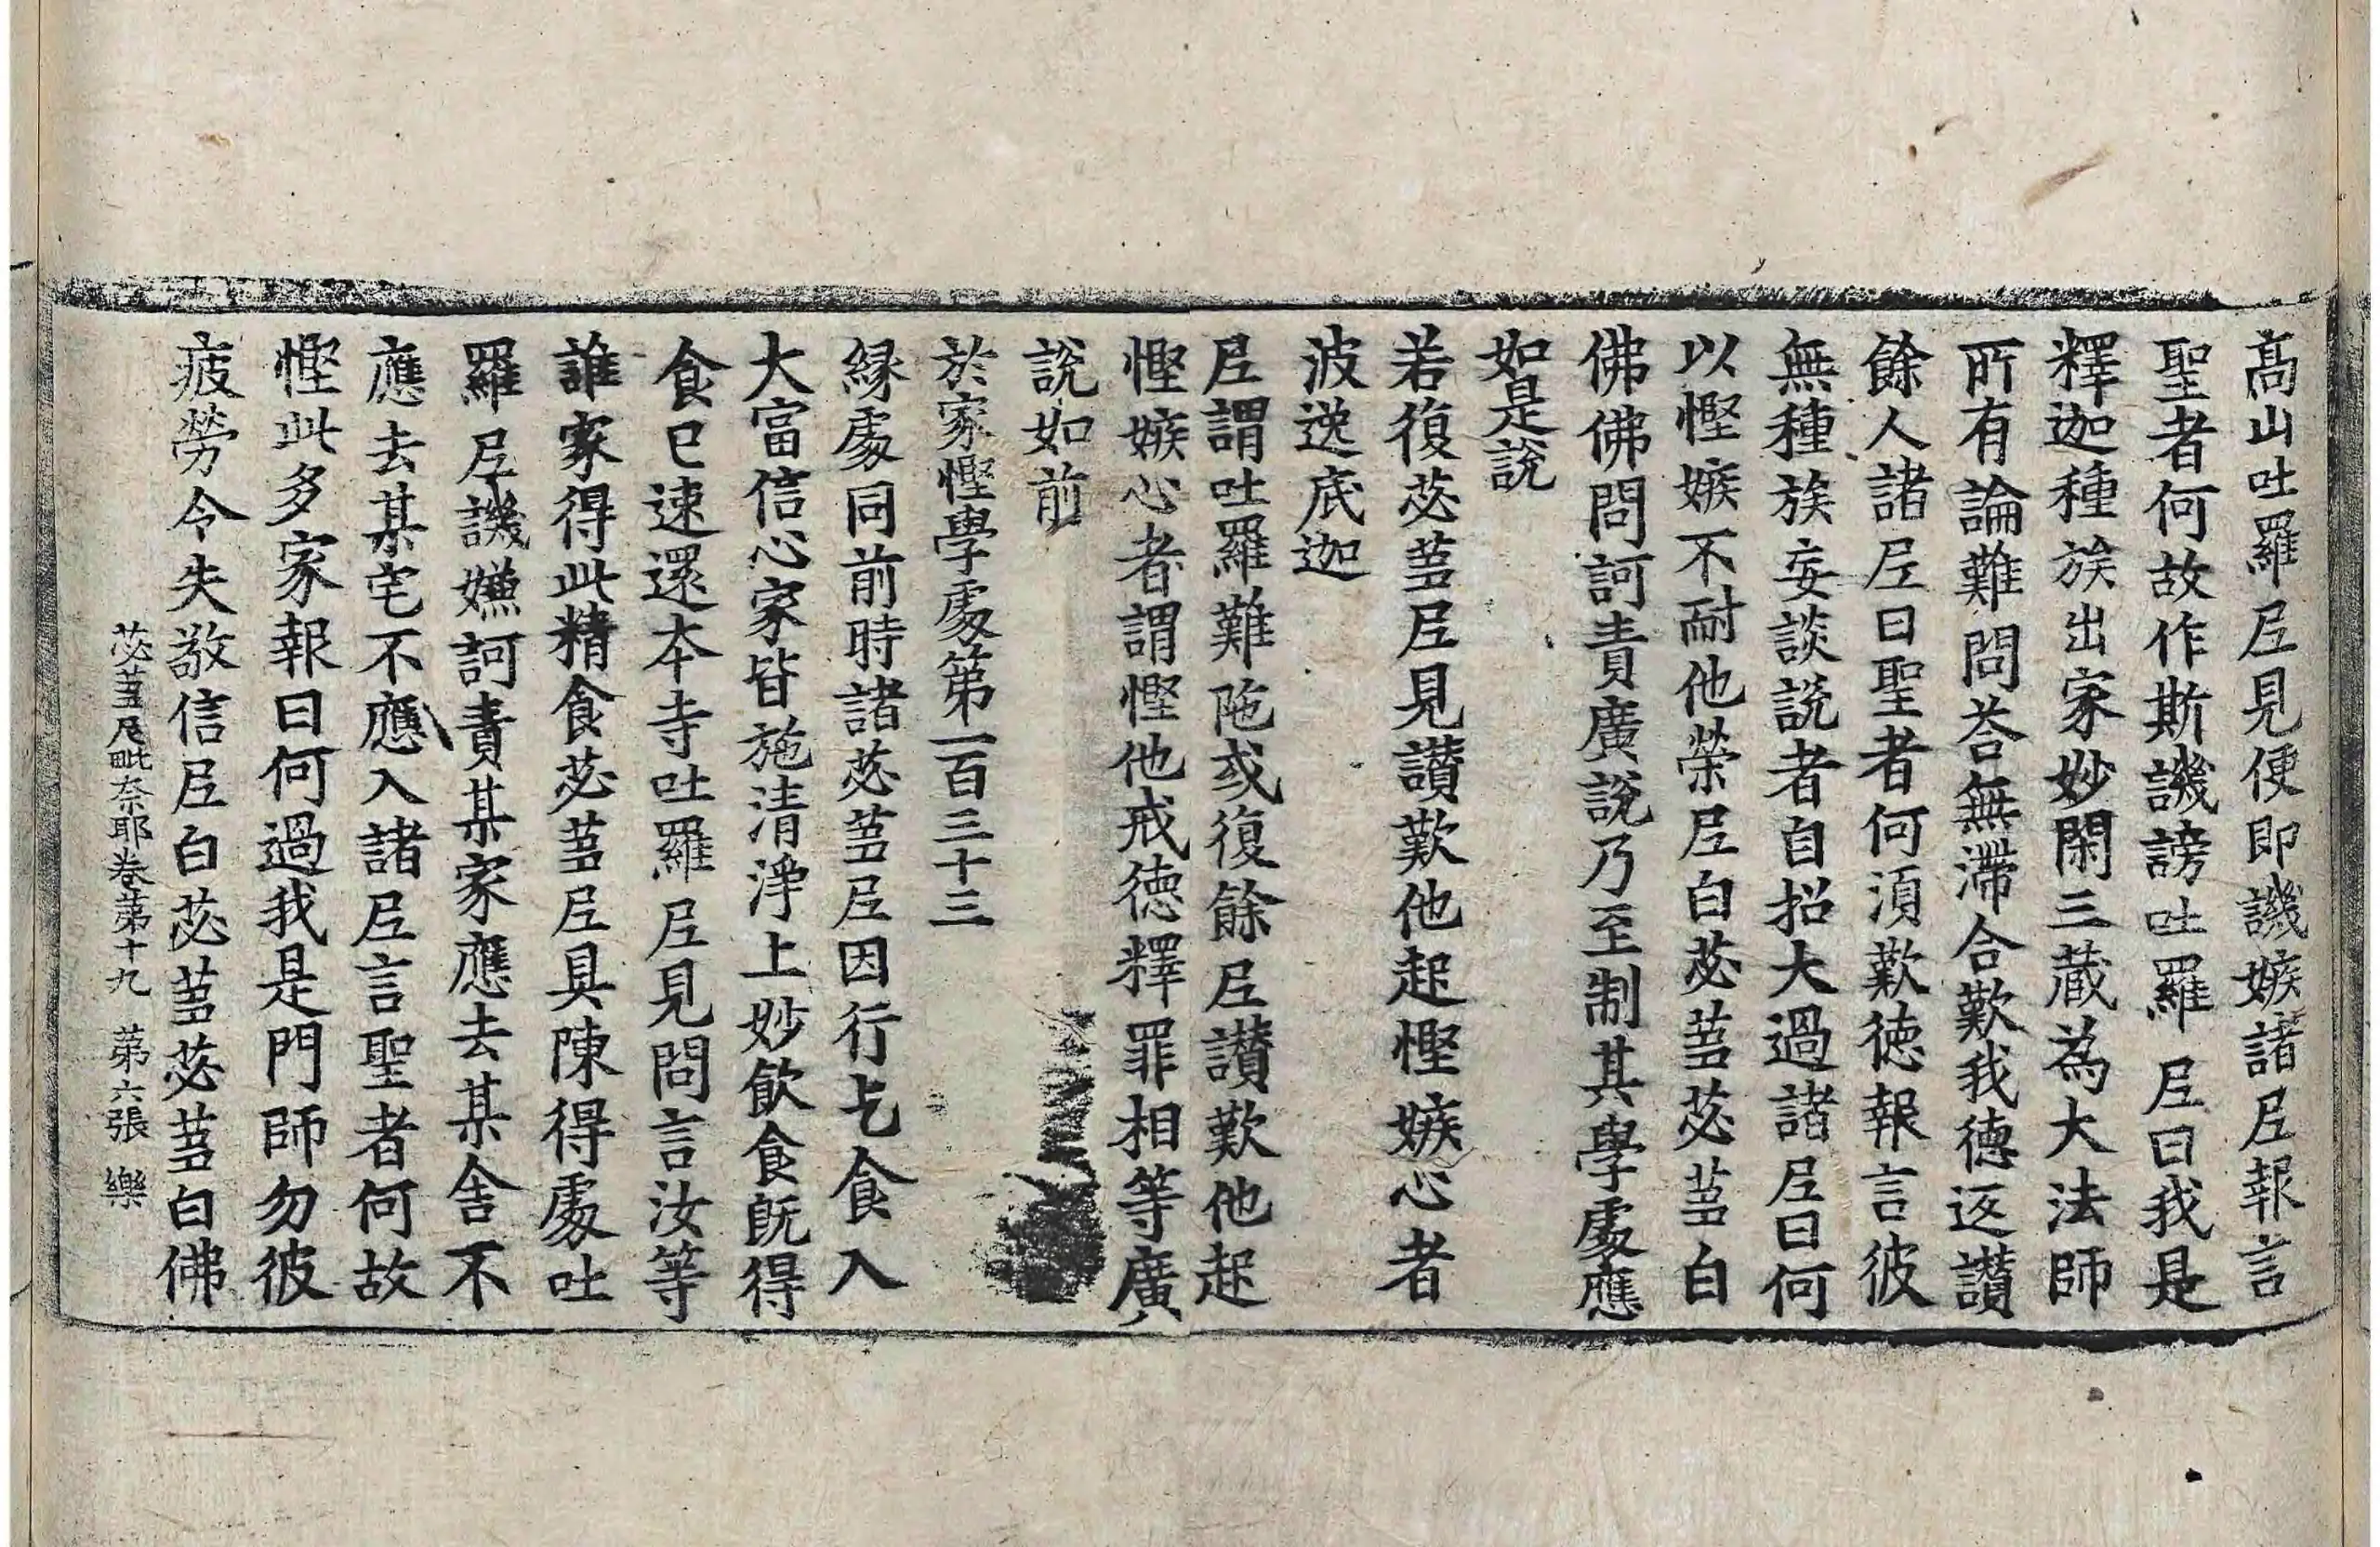 髙山吐羅尼見便即譏嫉諸尼報言
聖者何故作斯譏謗吐羅尼曰我是
釋迦種族出家妙閑三蔵為大法師
所有論難問荅無滯合歎我德返讃
餘人諸尼曰聖者何湏歎德報言彼
無種族妄談説者自招大過諸尼曰何
以慳嫉不耐他榮尼白苾蒭苾蒭白
佛佛問訶責廣説乃至制其學處應
如是說
若復苾蒭尼見讃歎他起慳嫉心者
波逸底迦
尼謂吐羅難陁或復餘尼讃歎他起
慳嫉心者謂慳他戒德釋罪相等廣
說如前
於家慳學處第一百三十三
緣處同前時諸苾蒭尼因行乞食入
大富信心家皆施清淨上妙飲食旣得
食已速還本寺吐羅尼見問言汝等
誰家得此精食苾蒭尼具陳得處吐
羅尼譏嫌訶責某家應去某舍不
應去某宅不應入諸尼言聖者何故
慳此多家報曰何過我是門師勿彼
疲勞令失敬信尼白苾蒭苾蒭白佛
苾蒭尼毗奈耶卷第十九　第六張　樂